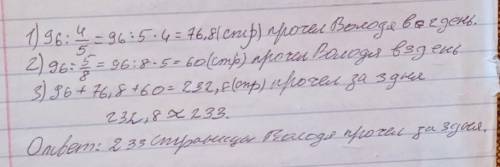 1) 96 : 4/5 = 96 : 5 · 4 = 76,8 (стр) прочел Володя в 2 день.
2) 96 : 5/8 = 96 : 8 · 5 = 60 (стр) прочел Володя в 3 день
3) 96 + 76,8 + 60 = 232,8 (стр) прочел за 3 дня
232,8 ≈ 233.
Ответ: 233 страницы Володя прочел за 3 дня.